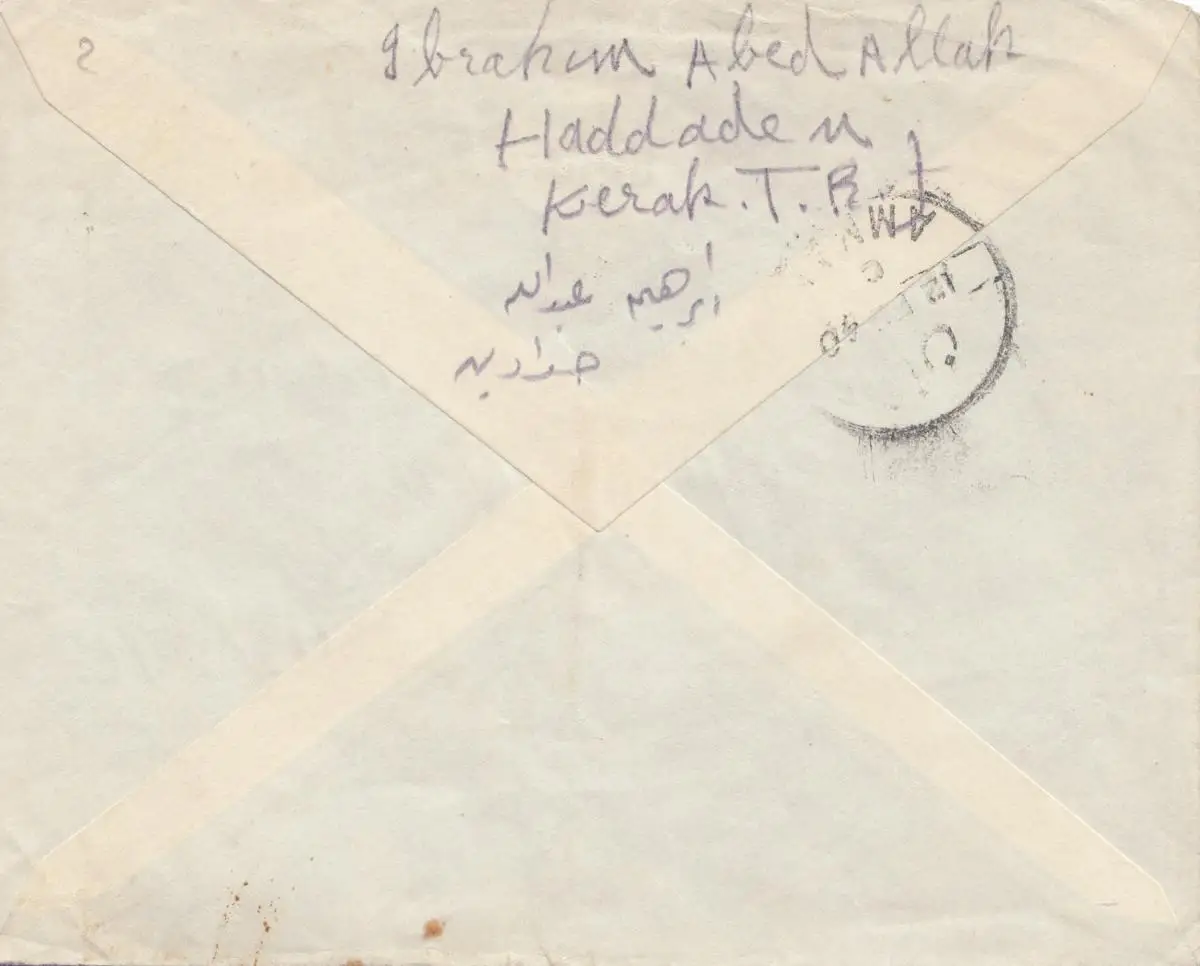 2
Ibrahim Abed Allah
Haddaden
Kerak. T. R. J
ابراهيم عبدالله
حدادين
AMMAN
C
12 40